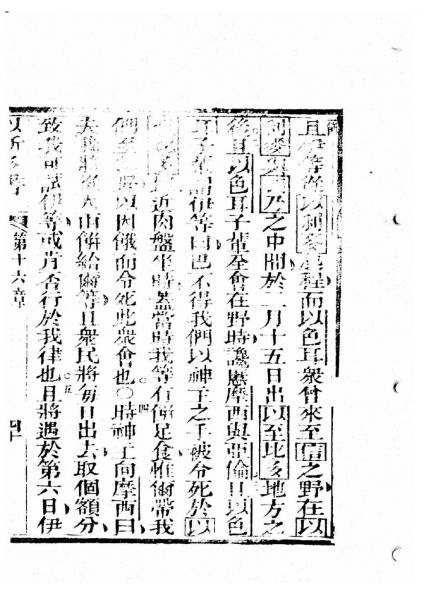 且伊等從以利麥程而以色耳衆會來至信之野在以
利麥乃之中間於二月十五日出以至比多地方之
後且以色耳子輩全會在野時讒摩西與亞倫且以色
耳子輩謂伊等曰巴不得我們以神主之手被令死於以
近肉盤坐時蓋當時我等有餅足食惟爾帶我
們至野以因餓而令死此衆會也○四時神主向摩西曰
夫我將餅給爾等且衆民將每日出去取個額分
致我可試伊等或肯否行於我律也○五且將遇於第六日伊
以所多書 第十六章 四十